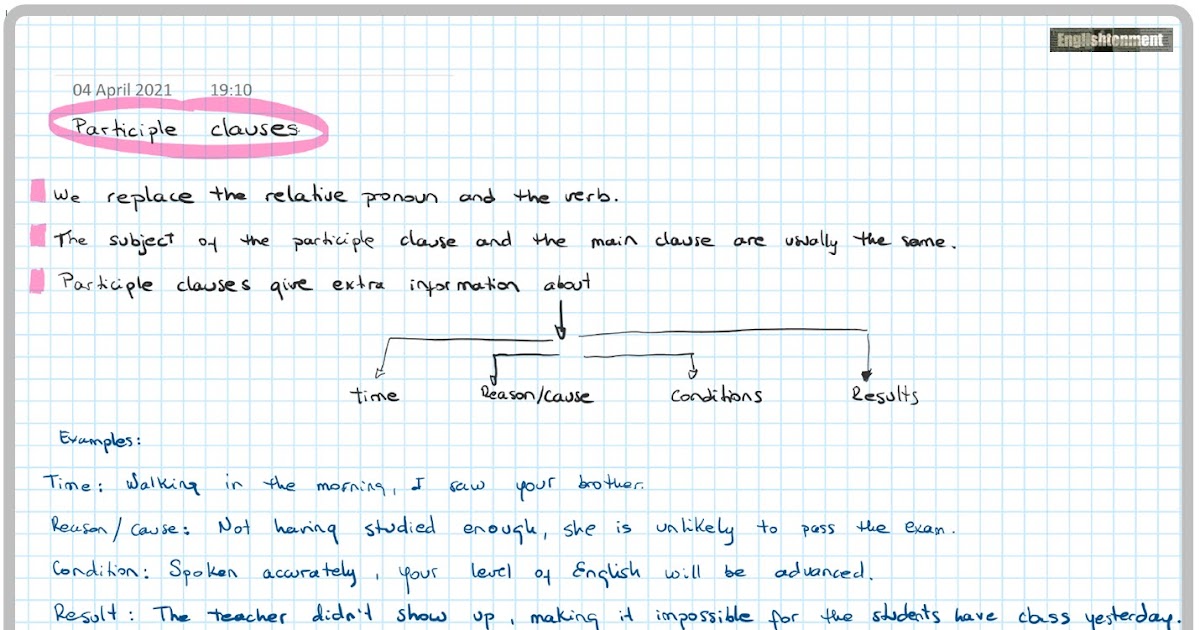 Englishtonment
04 April 2021 19:10
Participle clauses
We replace the relative pronoun and the verb.
The subject of the participle clause and the main clause are usually the same.
Participle clauses give extra information about
Time Reason/cause Conditions Results
Examples:
Time: Walking in the morning, I saw your brother.
Reason/cause: Not having studied enough, she is unlikely to pass the exam.
Condition: Spoken accurately, your level of English will be advanced.
Result: The teacher didn't show up, making it impossible for the students have class yesterday.